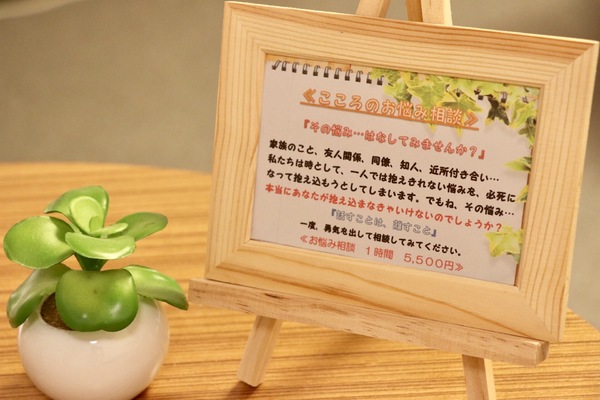 ≪こころのお悩み相談≫
『その悩み…はなしてみませんか？』
家族のこと、友人関係、同僚、知人、近所付き合い…
私たちは時として、一人では抱えきれない悩みを、必死に
なって抱え込もうとしてしまいます。でもね、その悩み…
本当にあなたが抱え込まなきゃいけないのでしょうか？
『話すことは、離すこと』
一度、勇気を出して相談してみてください。
≪お悩み相談　1時間　5,500円≫